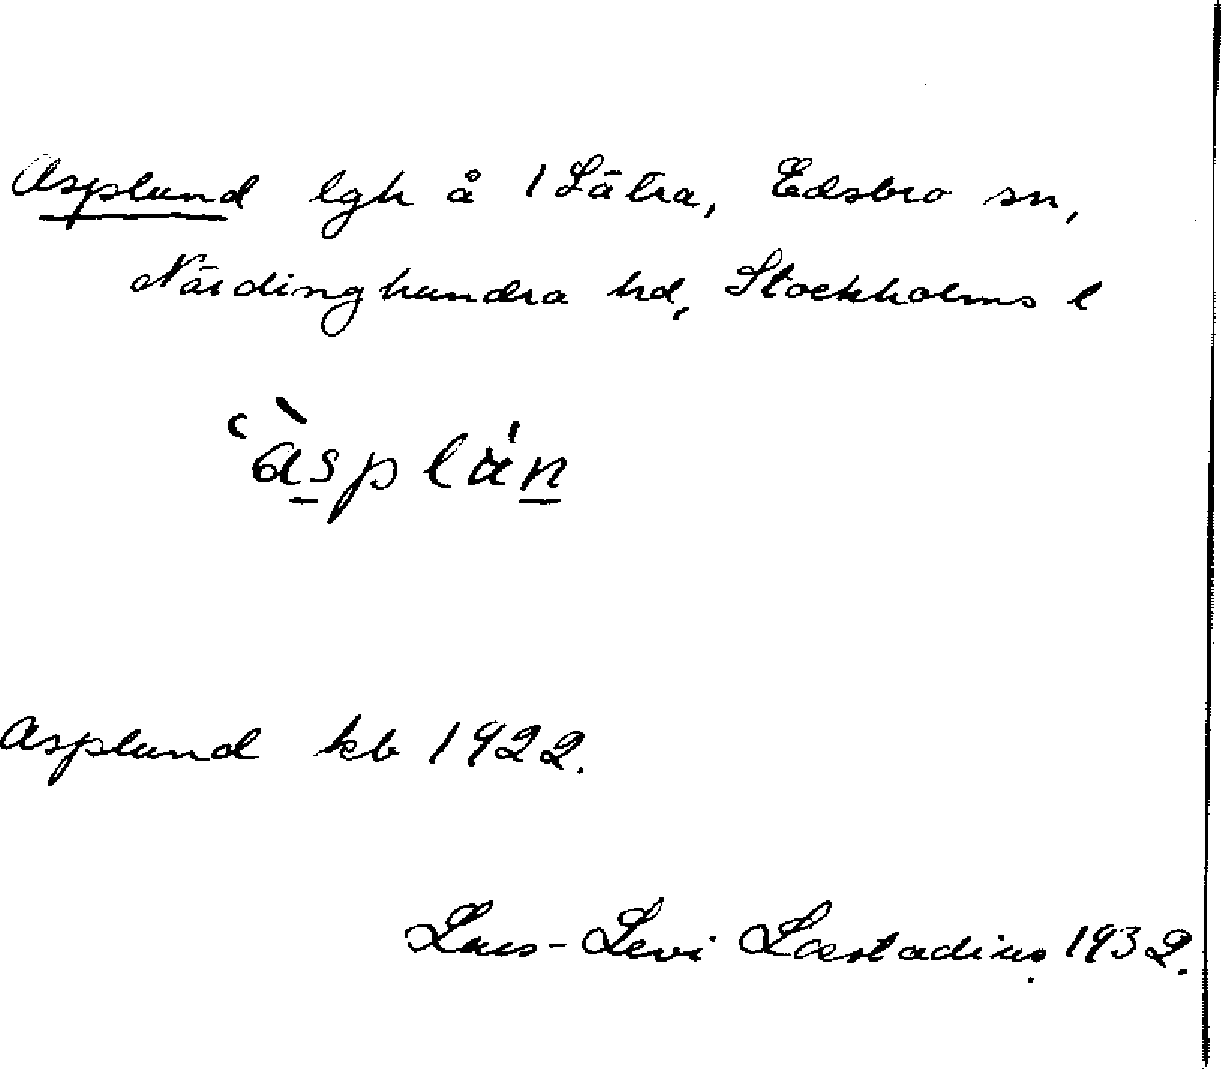 Asplund lgh å 1 Sätra, Edsbro sn,
Närdinghundra hd, Stockholms l
Asplund kb 1922.
Lars-Levi Læstadius 1932.